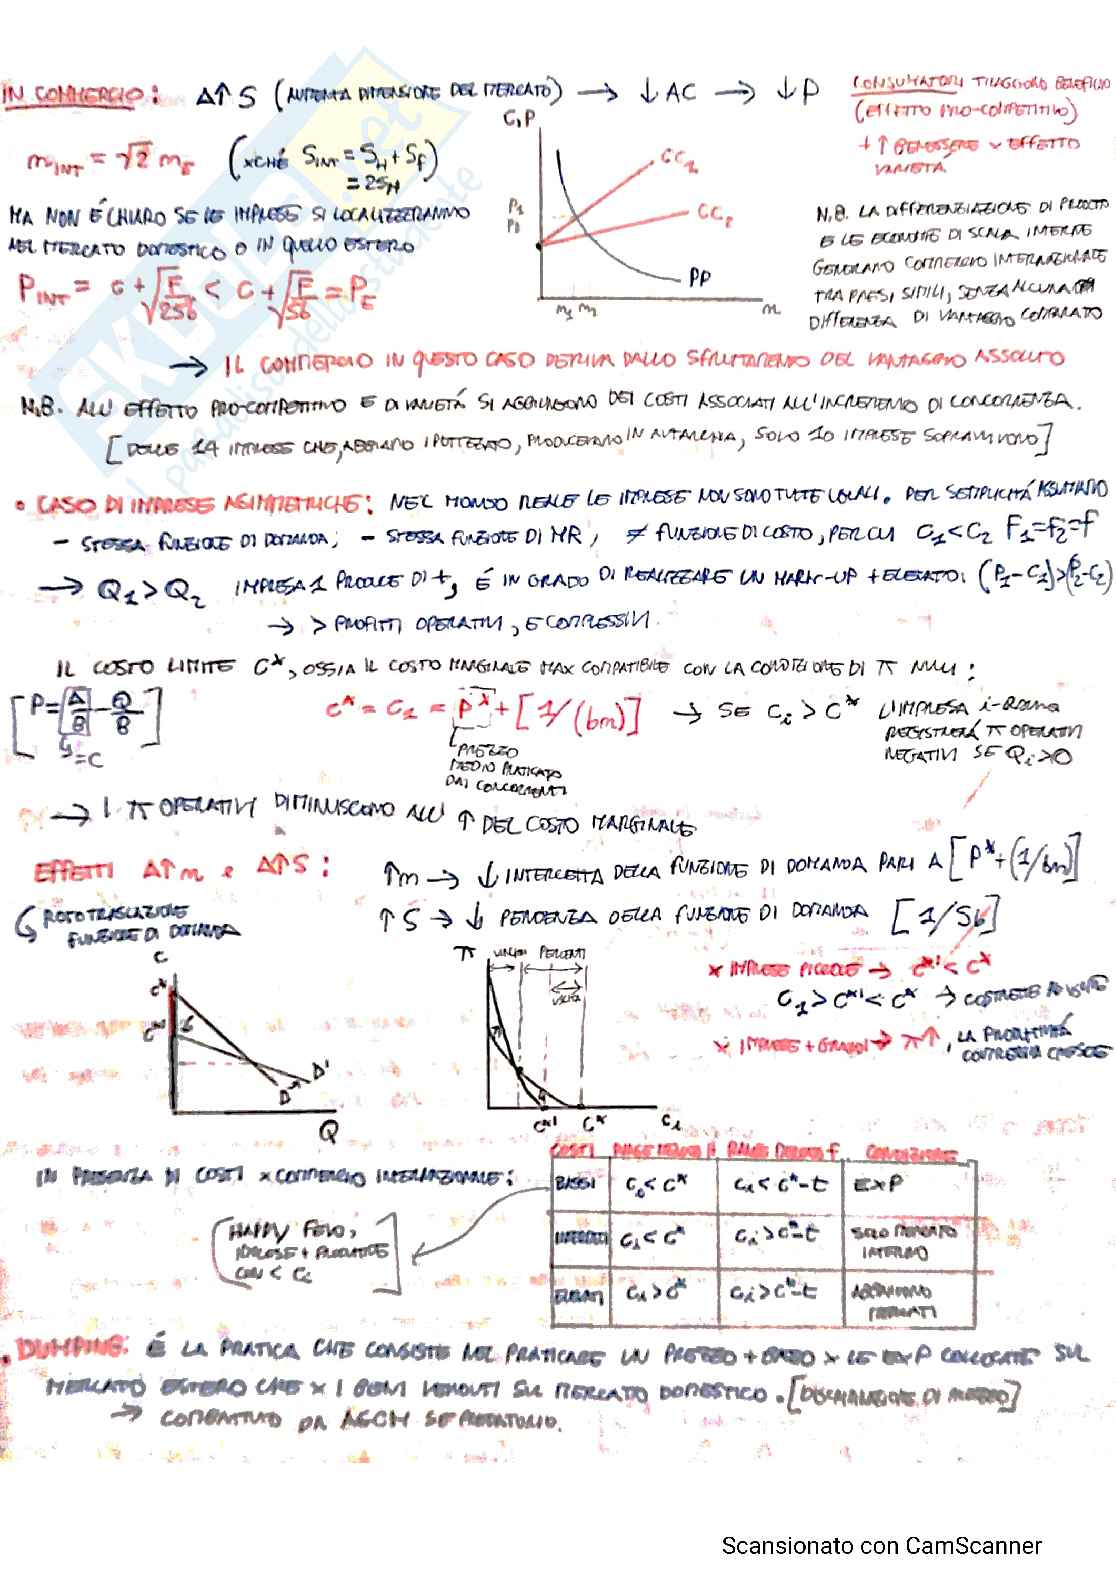 IN COMMERCIO: Δ↑ S (AUMENTA DIMENSIONE DEL MERCATO) → ↓ AC → ↓ P
CONSUMATORI TRAGGONO BENEFICIO
(EFFETTO PRO-COMPETITIVO)
+ ↑ BENESSERE × EFFETTO
VARIETÀ
m INT = √2 m E (×CHÉ S INT = S H + S F)
= 2S H
MA NON È CHIARO SE LE IMPRESE SI LOCALIZZERANNO
NEL MERCATO DOMESTICO O IN QUELLO ESTERO
P INT = c + √F/2Sb < c + √F/Sb = P E
C,P
CC1
CC2
P1
P2
PP
m1 m2
m
N.B. LA DIFFERENZIAZIONE DI PRODOTTO
E LE ECONOMIE DI SCALA INTERNE
GENERANO COMMERCIO INTERNAZIONALE
TRA PAESI SIMILI, SENZA ALCUNA
DIFFERENZA DI VANTAGGIO COMPARATO
→ IL COMMERCIO IN QUESTO CASO DERIVA DALLO SFRUTTAMENTO DEL VANTAGGIO ASSOLUTO
N.B. ALL'EFFETTO PRO-COMPETITIVO E DI VARIETÀ SI AGGIUNGONO DEI COSTI ASSOCIATI ALL'INCREMENTO DI CONCORRENZA.
[DELLE 14 IMPRESE CHE, ABBIAMO IPOTIZZATO, PRODUCEVANO IN AUTARCHIA, SOLO 10 IMPRESE SOPRAVVIVONO]
• CASO DI IMPRESE ASIMMETRICHE: NEL MONDO REALE LE IMPRESE NON SONO TUTE UGUALI. PER SEMPLICITÀ ASSUMIAMO
- STESSA FUNZIONE DI DOMANDA; - STESSA FUNZIONE DI MR, ≠ FUNZIONE DI COSTO, PER CUI C1<C2 F1=F2=F
→ Q1>Q2 IMPRESA 1 PRODUCE DI +, È IN GRADO DI REALIZZARE UN MARK-UP + ELEVATO: (P1-C1)>(P2-C2)
→ > PROFITTI OPERATIVI, E COMPLESSIVI.
IL COSTO LIMITE C*, OSSIA IL COSTO MARGINALE MAX COMPATIBILE CON LA CONDIZIONE DI π NULLI:
[P = A/B - Q/B]
= C
C* = C1 = P* + [1/(bm)] → SE Ci > C* L'IMPRESA i-ESIMA
REGISTRERÀ π OPERATIVI
NEGATIVI SE Qi>0
PREZZO
MEDIO PRATICATO
DAI CONCORRENTI
→ I π OPERATIVI DIMINUISCONO ALL' ↑ DEL COSTO MARGINALE
EFFETTI Δ↑m e Δ↑S: ↑m → ↓ INTERCETTA DELLA FUNZIONE DI DOMANDA PARI A [P*+(1/bm)]
ROTOTRASLAZIONE
FUNZIONE DI DOMANDA
↑ S → ↓ PENDENZA DELLA FUNZIONE DI DOMANDA [1/Sb]
C
C*
C*'
D
D'
Q
π
VINCENTI PERDENTI
USCITA
C*' C* Ci
× IMPRESE PICCOLE → C*' < C*
C1 > C*' < C* → COSTRETTE AD USCIRE
× IMPRESE + GRANDI → π↑, LA PRODUTTIVITÀ
COMPLESSIVA CRESCE
IN PRESENZA DI COSTI × COMMERCIO INTERNAZIONALE:
COSTI
CONDIZIONE
BASSI Ci < C* Ci < C*-t EXP
INTERMEDI Ci < C* Ci > C*-t SOLO MERCATO INTERNO
ELEVATI Ci > C* Ci > C*-t ABBANDONO MERCATI
[HAPPY FEW,
IMPRESE + PRODUTTIVE
CON < Ci]
• DUMPING: È LA PRATICA CHE CONSISTE NEL PRATICARE UN PREZZO + BASSO × LE EXP COLLOCATE SUL
MERCATO ESTERO CHE × I BENI VENDUTI SUL MERCATO DOMESTICO. [DISCRIMINAZIONE DI PREZZO]
→ COMBATTUTO DA AGCM SE PREDATORIO.
SKUOLA.net
il paradiso dello studente
Scansionato con CamScanner